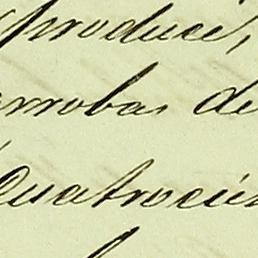 produce,
arrobas de
Quatrocien